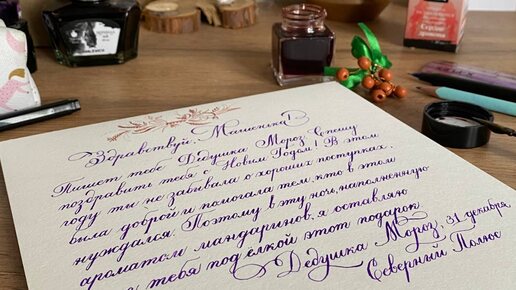 Здравствуй, Машенька!
Пишет тебе Дедушка Мороз. Спешу
поздравить тебя с Новым Годом! В этом
году ты не забывала о хороших поступках,
была доброй и помогала тем, кто в этом
нуждался. Поэтому в эту ночь, наполненную
ароматом мандаринов, я оставляю
тебя под ёлкой этот подарок.
Дедушка Мороз, 31 декабря,
Северный Полюс